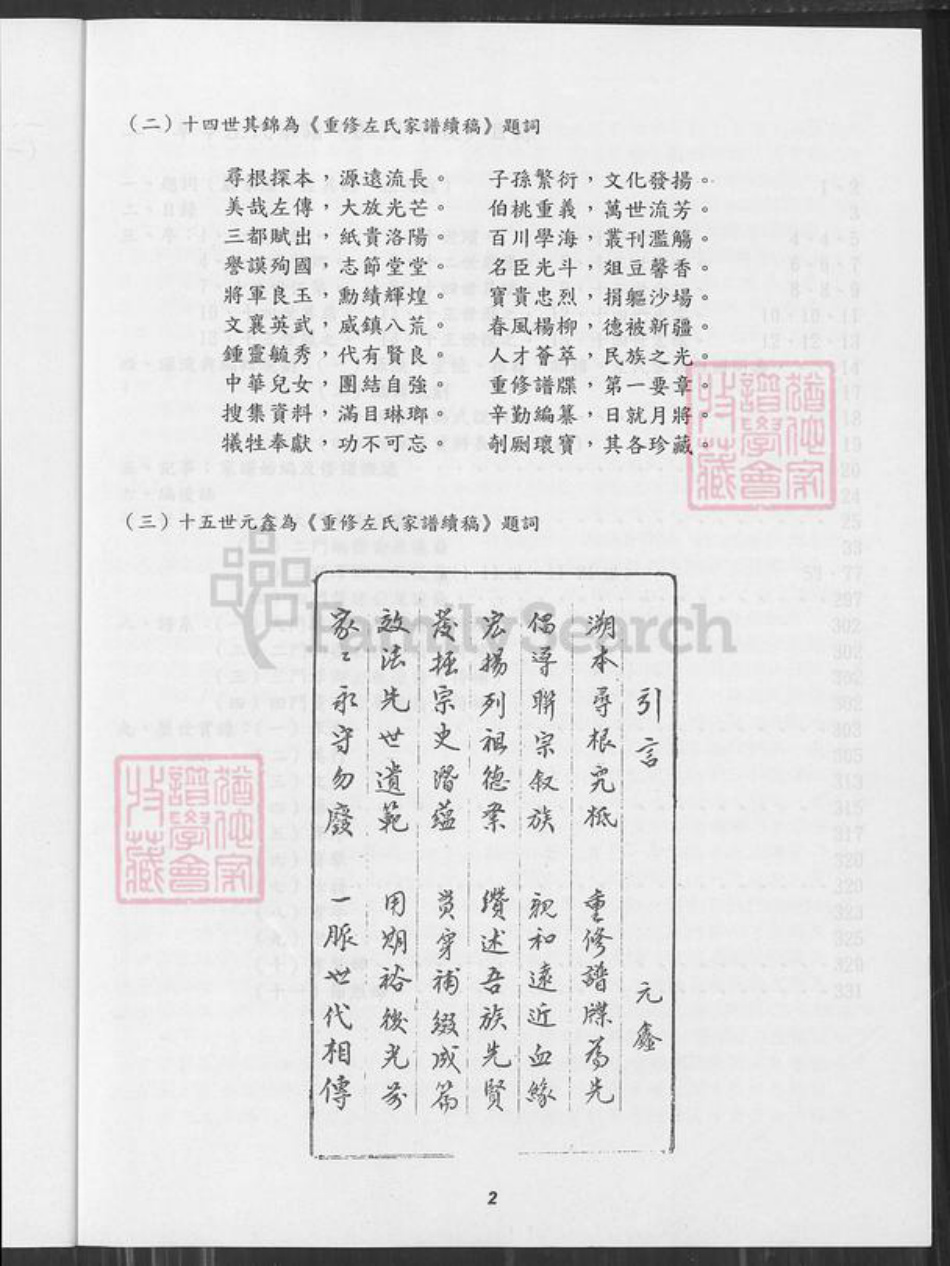 (二)十四世其錦為《重修左氏家譜續稿》題詞
尋根探本,源遠流長。 子孫繁衍,文化發揚。
美哉左傳,大放光芒。 伯桃重義,萬世流芳。
三都賦出,紙貴洛陽。 百川學海,叢刊濫觴。
譽謨殉國,志節堂堂。 名臣光斗,俎豆馨香。
將軍良玉,勳績輝煌。 寶貴忠烈,捐軀沙場。
文襄英武,威鎮八荒。 春風楊柳,德被新疆。
鍾靈毓秀,代有賢良。 人才薈萃,民族之光。
中華兒女,團結自強。 重修譜牒,第一要章。
搜集資料,滿目琳瑯。 辛勤編纂,日就月將。
犧牲奉獻,功不可忘。 剞劂瓌寶,其各珍藏。
(三)十五世元鑫為《重修左氏家譜續稿》題詞
引言 元鑫
溯本尋根究柢 重修譜牒為先
倡導聯宗叙族 親和遠近血緣
宏揚列祖德業 纘述吾族先賢
發掘宗史潛蘊 貫穿補綴成篇
效法先世遺範 用期裕後光前
家々永守勿廢 一脈世代相傳
FamilySearch
2